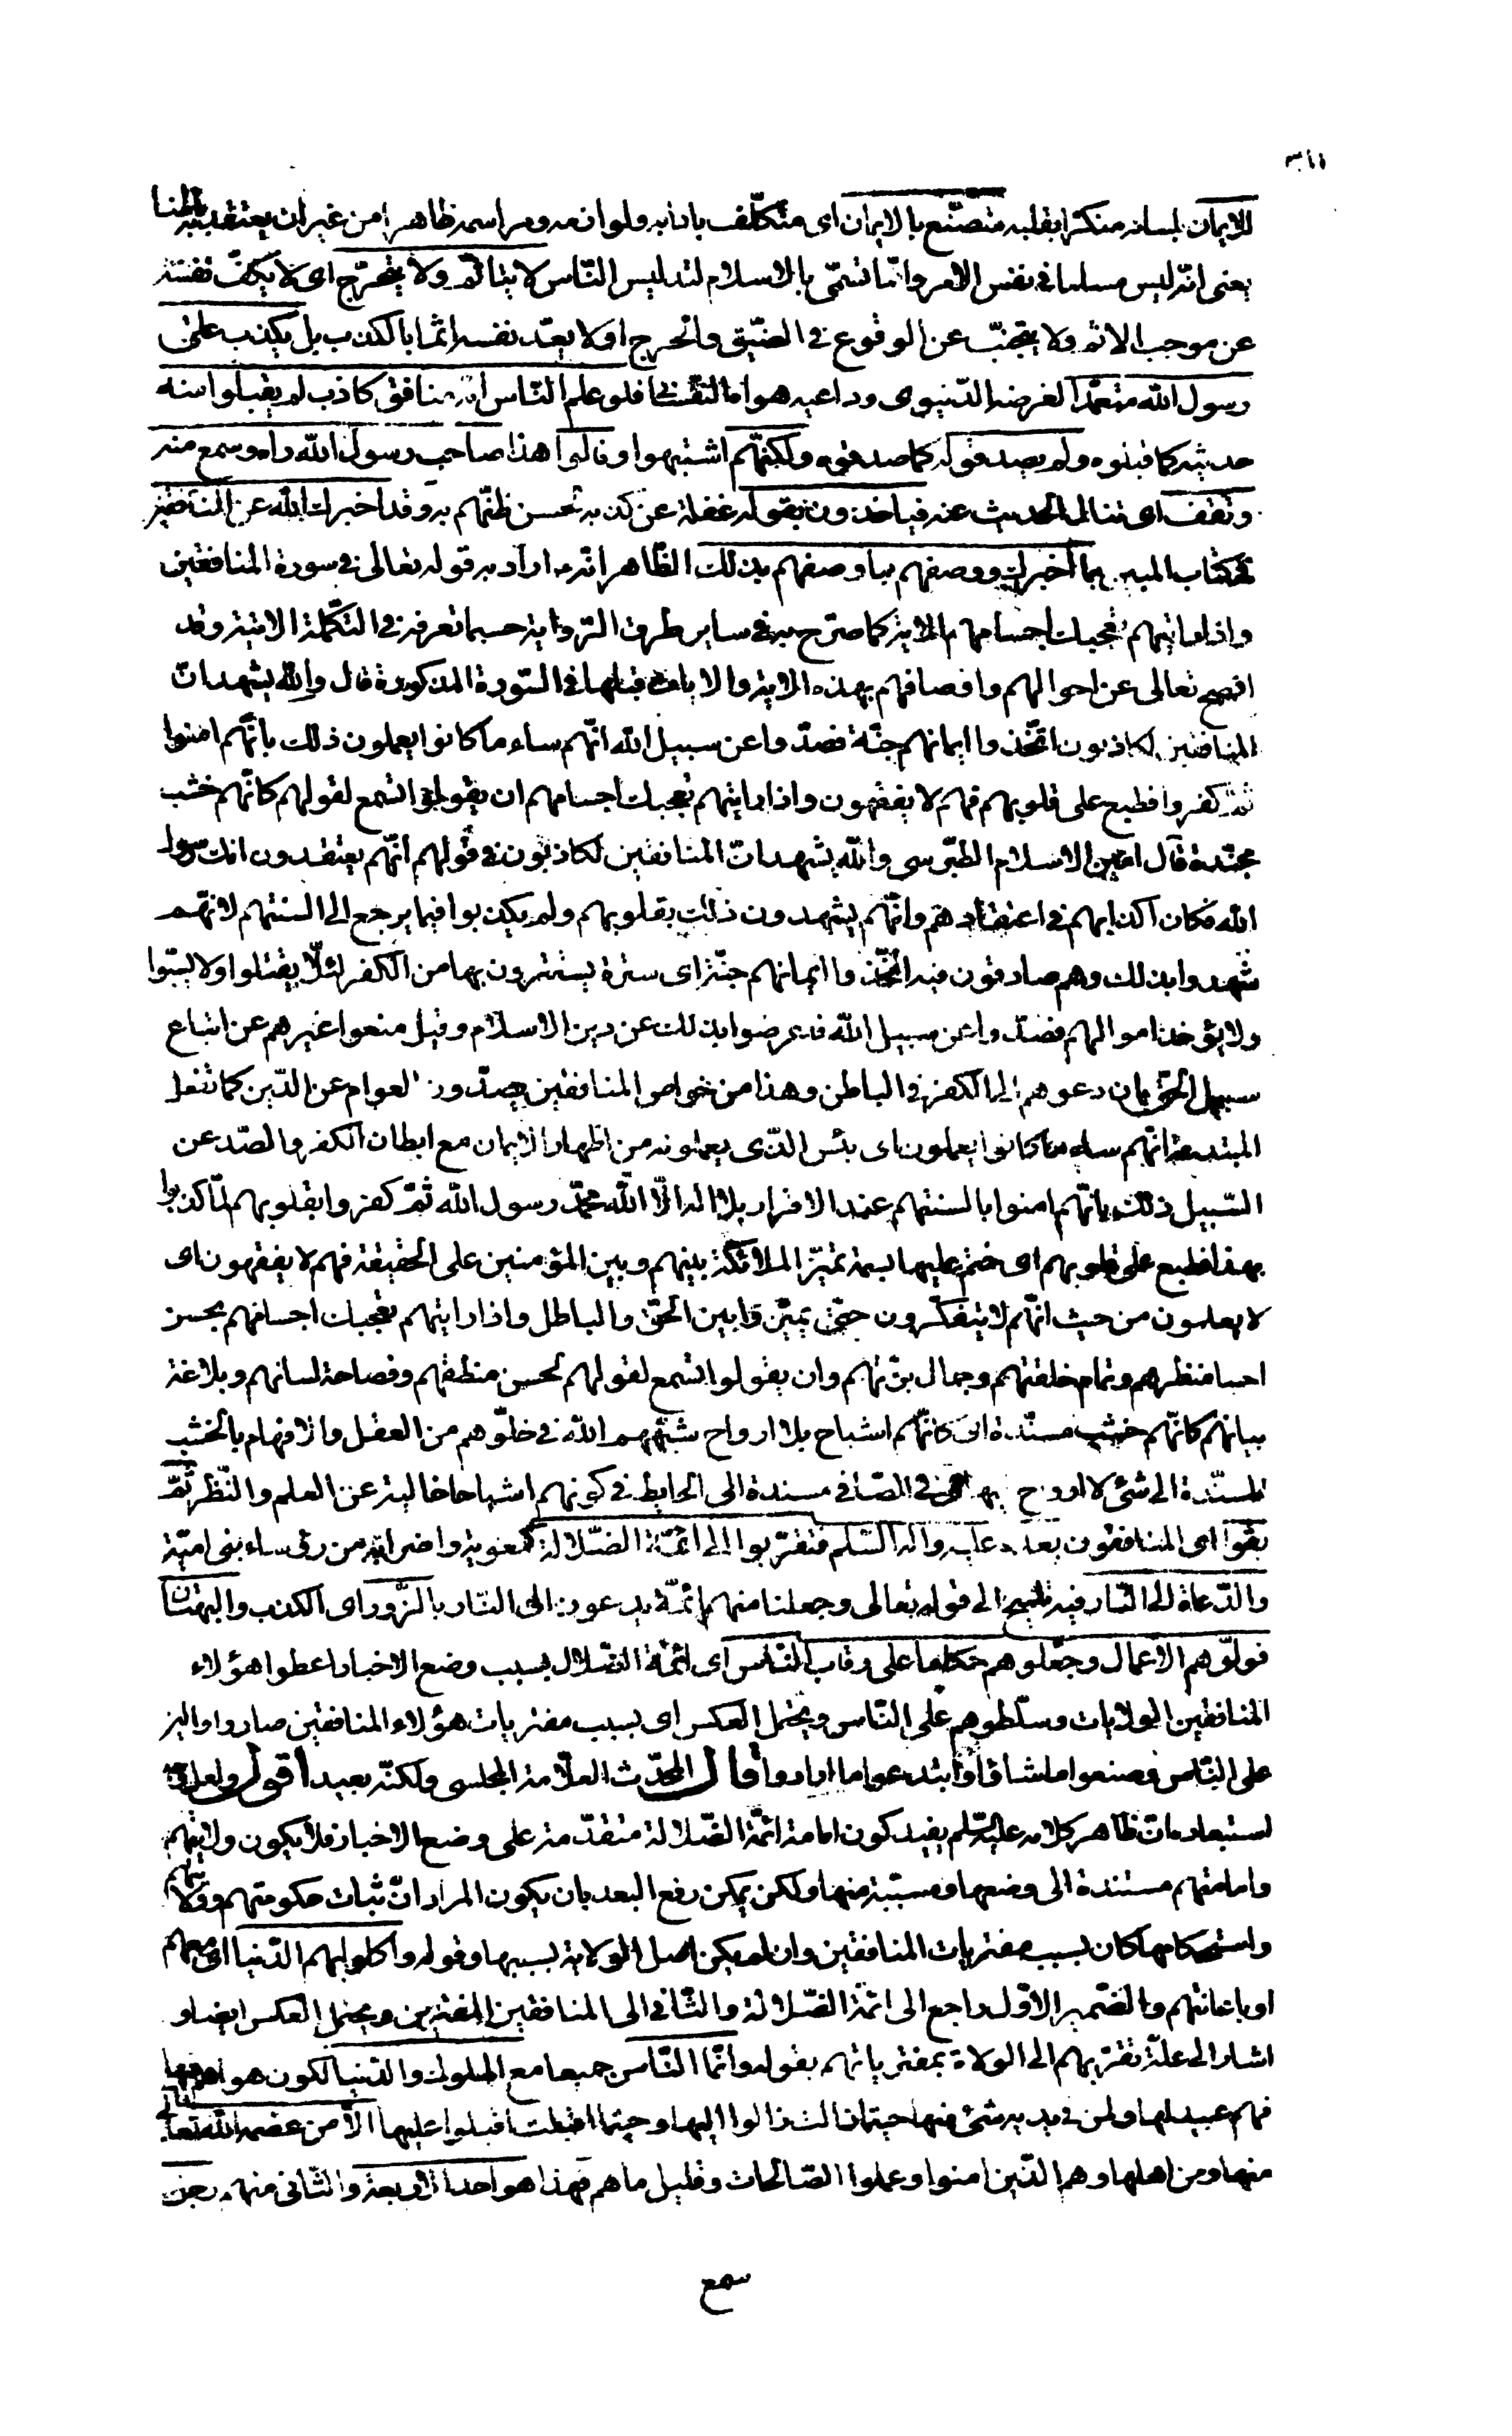 للايمان بلسانه منكرا بقلبه متصنّع بالايمان اى متكلّف بادابه ولوازمه ومراسمه ظاهرا من غير ان يعتقد به باطنا
يعنى انّه ليس مسلما فى نفس الامر وانّما تسمّى بالاسلام لتدليس النّاس لا يتاثّم ولا يتحرّج اى لا يكفّ نفسه
عن موجب الاثم ولا يتجنّب عن الوقوع فى الضّيق والحرج او لا يعدّ نفسه اثما بالكذب بل يكذب على
رسول الله متعمّدا لغرضه الدّنيوى وداعيه هواه النّفسانى فلو علم النّاس انه منافق كاذب لم يقبلوا منه
حديثه كما قبلوه ولم يصدقوله كما صدقوه ولكنّهم اشتبهوا وقالوا هذا صاحب رسول الله راه وسمع منه
وثقف اى تناول الحديث عنه فياخذون بقوله غفلة عن كذبه لحسن ظنّهم به وقد اخبرك الله عن المنافقين
فى كتاب المبين بما اخبرك ووصفهم بما وصفهم به لك الظّاهر انّه اراد به قوله تعالى فى سورة المنافقين
واذا رايتهم تعجبك اجسامهم الاية كما صرّح به فى ساير طرق الرّواية حسبما تعرفه فى التكملة الاتية وقد
افصح تعالى عن احوالهم واوصافهم بهذه الاية والايات قبلها فى السّورة المذكورة قال والله يشهد انّ
المنافقين لكاذبون اتّخذوا ايمانهم جنّة فصدّوا عن سبيل الله انّهم ساء ما كانوا يعملون ذلك بانّهم امنوا
ثمّ كفروا فطبع على قلوبهم فهم لا يفقهون واذا رايتهم تعجبك اجسامهم ان يقولوا تسمع لقولهم كانّهم خشب
مسنّدة قال امين الاسلام الطّبرسى والله يشهد انّ المنافقين لكاذبون فى قولهم انّهم يعتقدون انك رسول
الله فكان اكذابهم فى اعتقادهم وانّهم يشهدون ذلك بقلوبهم ولم يكذبوا فيما يرجع الى السنتهم لانّهم
شهدوا بذلك وهم صادقون فيه اتّخذوا ايمانهم جنّة اى سترة يستترون بها من الكفر لئلّا يقتلوا ولا يسبّوا
ولا يؤخذ اموالهم فصدّوا عن سبيل الله فاعرضوا بذلك عن دين الاسلام وقيل منعوا غيرهم عن اتباع
سبيل الحقّ بان دعوهم الى الكفر فى الباطن وهذا من خواص المنافقين يصدّون العوام عن الدّين كما تفعل
المبتدعة انّهم ساء ما كانوا يعملون اى بئس الّذى يعملونه من اظهار الايمان مع ابطان الكفر والصّد عن
السّبيل ذلك بانّهم امنوا بالسنتهم عند الاقرار بلا اله الّا الله محمّد رسول الله ثمّ كفروا بقلوبهم لمّا كذبوا
بهذا فطبع على قلوبهم اى ختم عليها بسمة تميّز الملائكة بينهم وبين المؤمنين على الحقيقة فهم لا يفقهون اى
لا يعلمون من حيث انّهم لا يتفكّرون حتّى يميّزوا بين الحقّ والباطل واذا رايتهم تعجبك اجسامهم بحسن
منظرهم وتمام خلقتهم وجمال بزّتهم وان يقولوا تسمع لقولهم لحسن منطقهم وفصاحة لسانهم وبلاغة
بيانهم كانّهم خشب مسنّدة اى كانّهم اشباح بلا ارواح شبّههم الله فى خلوّهم من العقل والافهام بالخشب
المسنّدة الى شئ لا ارواح بها فى الصّافى مسندة الى الحايط فى كونهم اشباحا خالية عن العلم والنّظر ثمّ
بقوا اى المنافقون بعده عليه واله السّلم فتقرّبوا الى ائمّة الضّلالة كمعوية واضرابه من رؤساء بنى اميّة
والدّعاة الى النّار فيه تلميح الى قوله تعالى وجعلنا منهم ائمّة يدعون الى النّار بالزّور اى الكذب والبهتان
فولّوهم الاعمال وجعلوهم حكاما على رقاب النّاس اى ائمّة الضّلال بسبب وضع الاخبار اعطوا هؤلاء
المنافقين الولايات وسلّطوهم على النّاس ويحتمل العكس اى بسبب مفتريات هؤلاء المنافقين صاروا والين
على النّاس وصنعوا ما شاؤا وابتدعوا ما ارادوا قال المحدّث العلّامة المجلسى ولكنّه بعيد اقول ولعل وجه
استبعاده انّ ظاهر كلامه عليه السّلم يفيد كون امامة ائمّة الضّلالة متقدّمة على وضع الاخبار فلا يكون ولايتهم
وامامتهم مستندة الى وضعها ومسبّبة منها ولكن يمكن رفع البعد بان يكون المراد انّ ثبات حكومتهم وولايتهم
واستحكامها كان بسبب مفتريات المنافقين وان لم يكن اصل الولاية بسببها وقوله واكلوا بهم الدّنيا اى معهم
او باعانتهم والضّمير الاوّل راجع الى ائمّة الضّلالة والثّانى الى المنافقين المفترين ويحتمل العكس ايضا و
اشار الى علّة تقرّبهم الى الولاة بمفترياتهم بقوله وانّما النّاس جميعا مع الملوك والدّنيا لكون هواهم فيها
فهم عبيد لها ولمن فى يديه شئ منها حيثما زالت زالوا اليها وحيثما اقبلت اقبلوا عليها الّا من عصمه الله تعالى
منها ومن اهلها وهم الّذين امنوا وعملوا الصّالحات وقليل ما هم فهذا هو احد الاربعة والثّانى منهم رجل
سمع